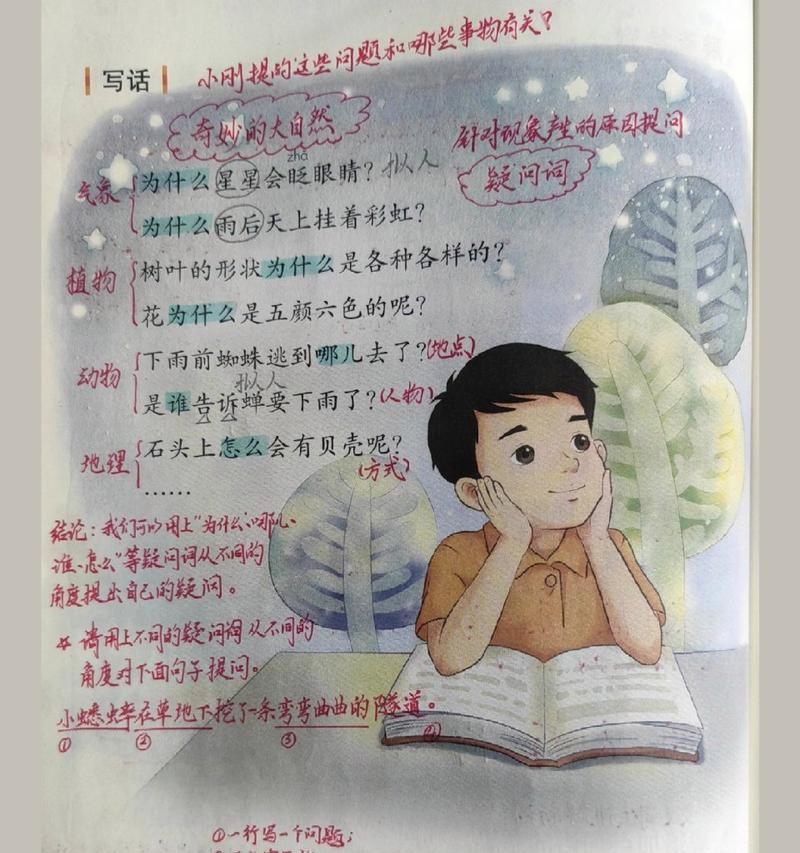 小刚提的这些问题和哪些事物有关?
写话
奇妙的大自然
针对现象产生的原因提问
疑问词
zhǎ
气象
为什么星星会眨眼睛?
拟人
为什么雨后天上挂着彩虹?
植物
树叶的形状为什么是各种各样的?
花为什么是五颜六色的呢?
动物
下雨前蜘蛛逃到哪儿去了?(地点)
拟人
是谁告诉蝉要下雨了?(人物)
地理
石头上怎么会有贝壳呢?
(方式)
……
结论:我们可以用上“为什么、哪儿、
谁、怎么”等疑问词从不同的
角度提出自己的疑问。
☆ 请用上不同的疑问词从不同的
角度对下面句子提问。
小蟋蟀在草地下挖了一条弯弯曲曲的隧道。
① ② ③ ④
①一行写一个问题;